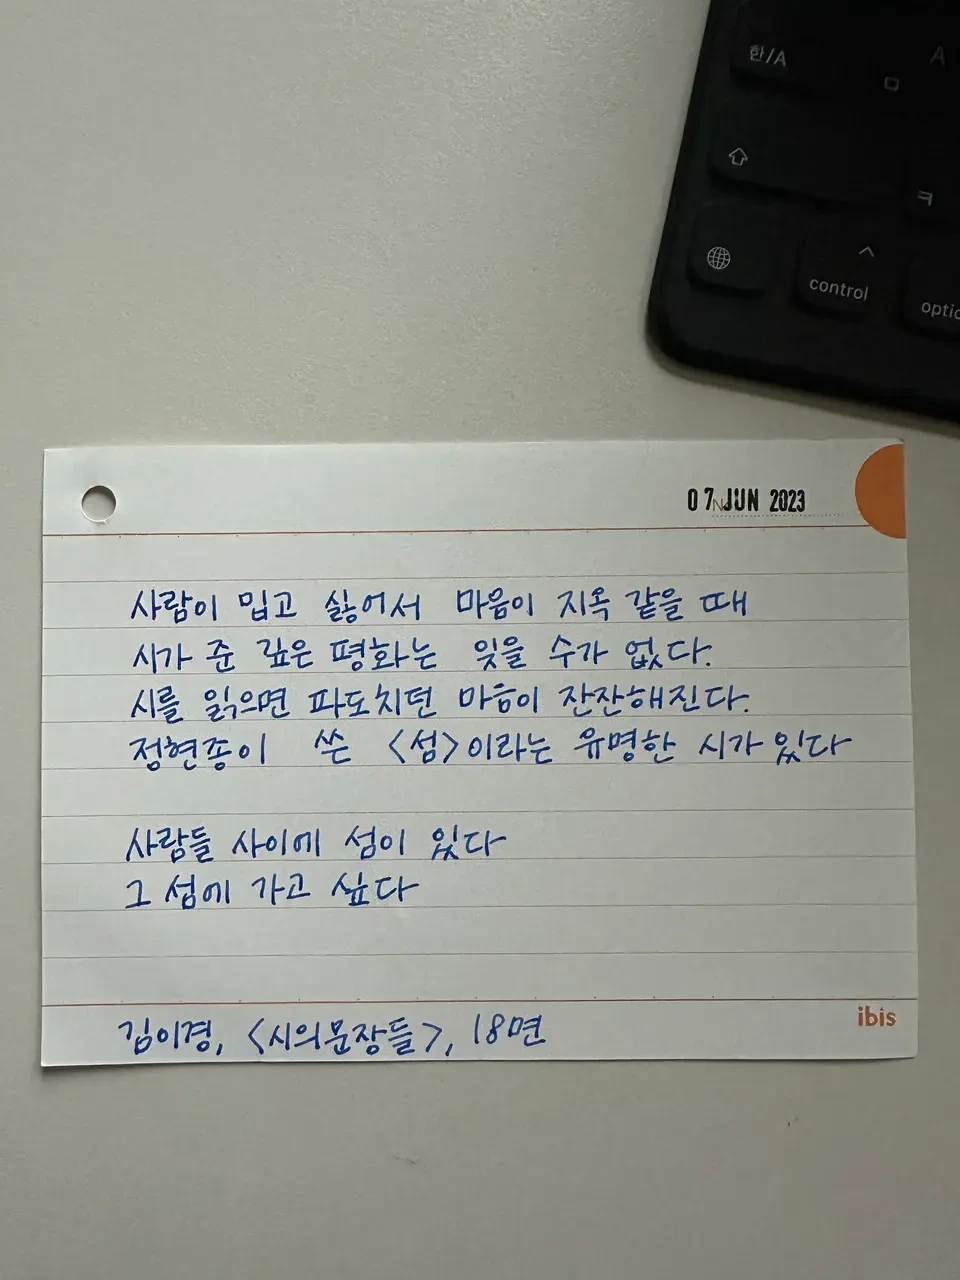 한/A
A
ㅁ
ㅋ
control
optio
07 JUN 2023
사람이 밉고 싫어서 마음이 지옥 같을 때
시가 준 깊은 평화는 잊을 수가 없다.
시를 읽으면 파도치던 마음이 잔잔해진다.
정현종이 쓴 <섬>이라는 유명한 시가 있다
사람들 사이에 섬이 있다
그 섬에 가고 싶다
김이경, <시의문장들>, 18면
ibis